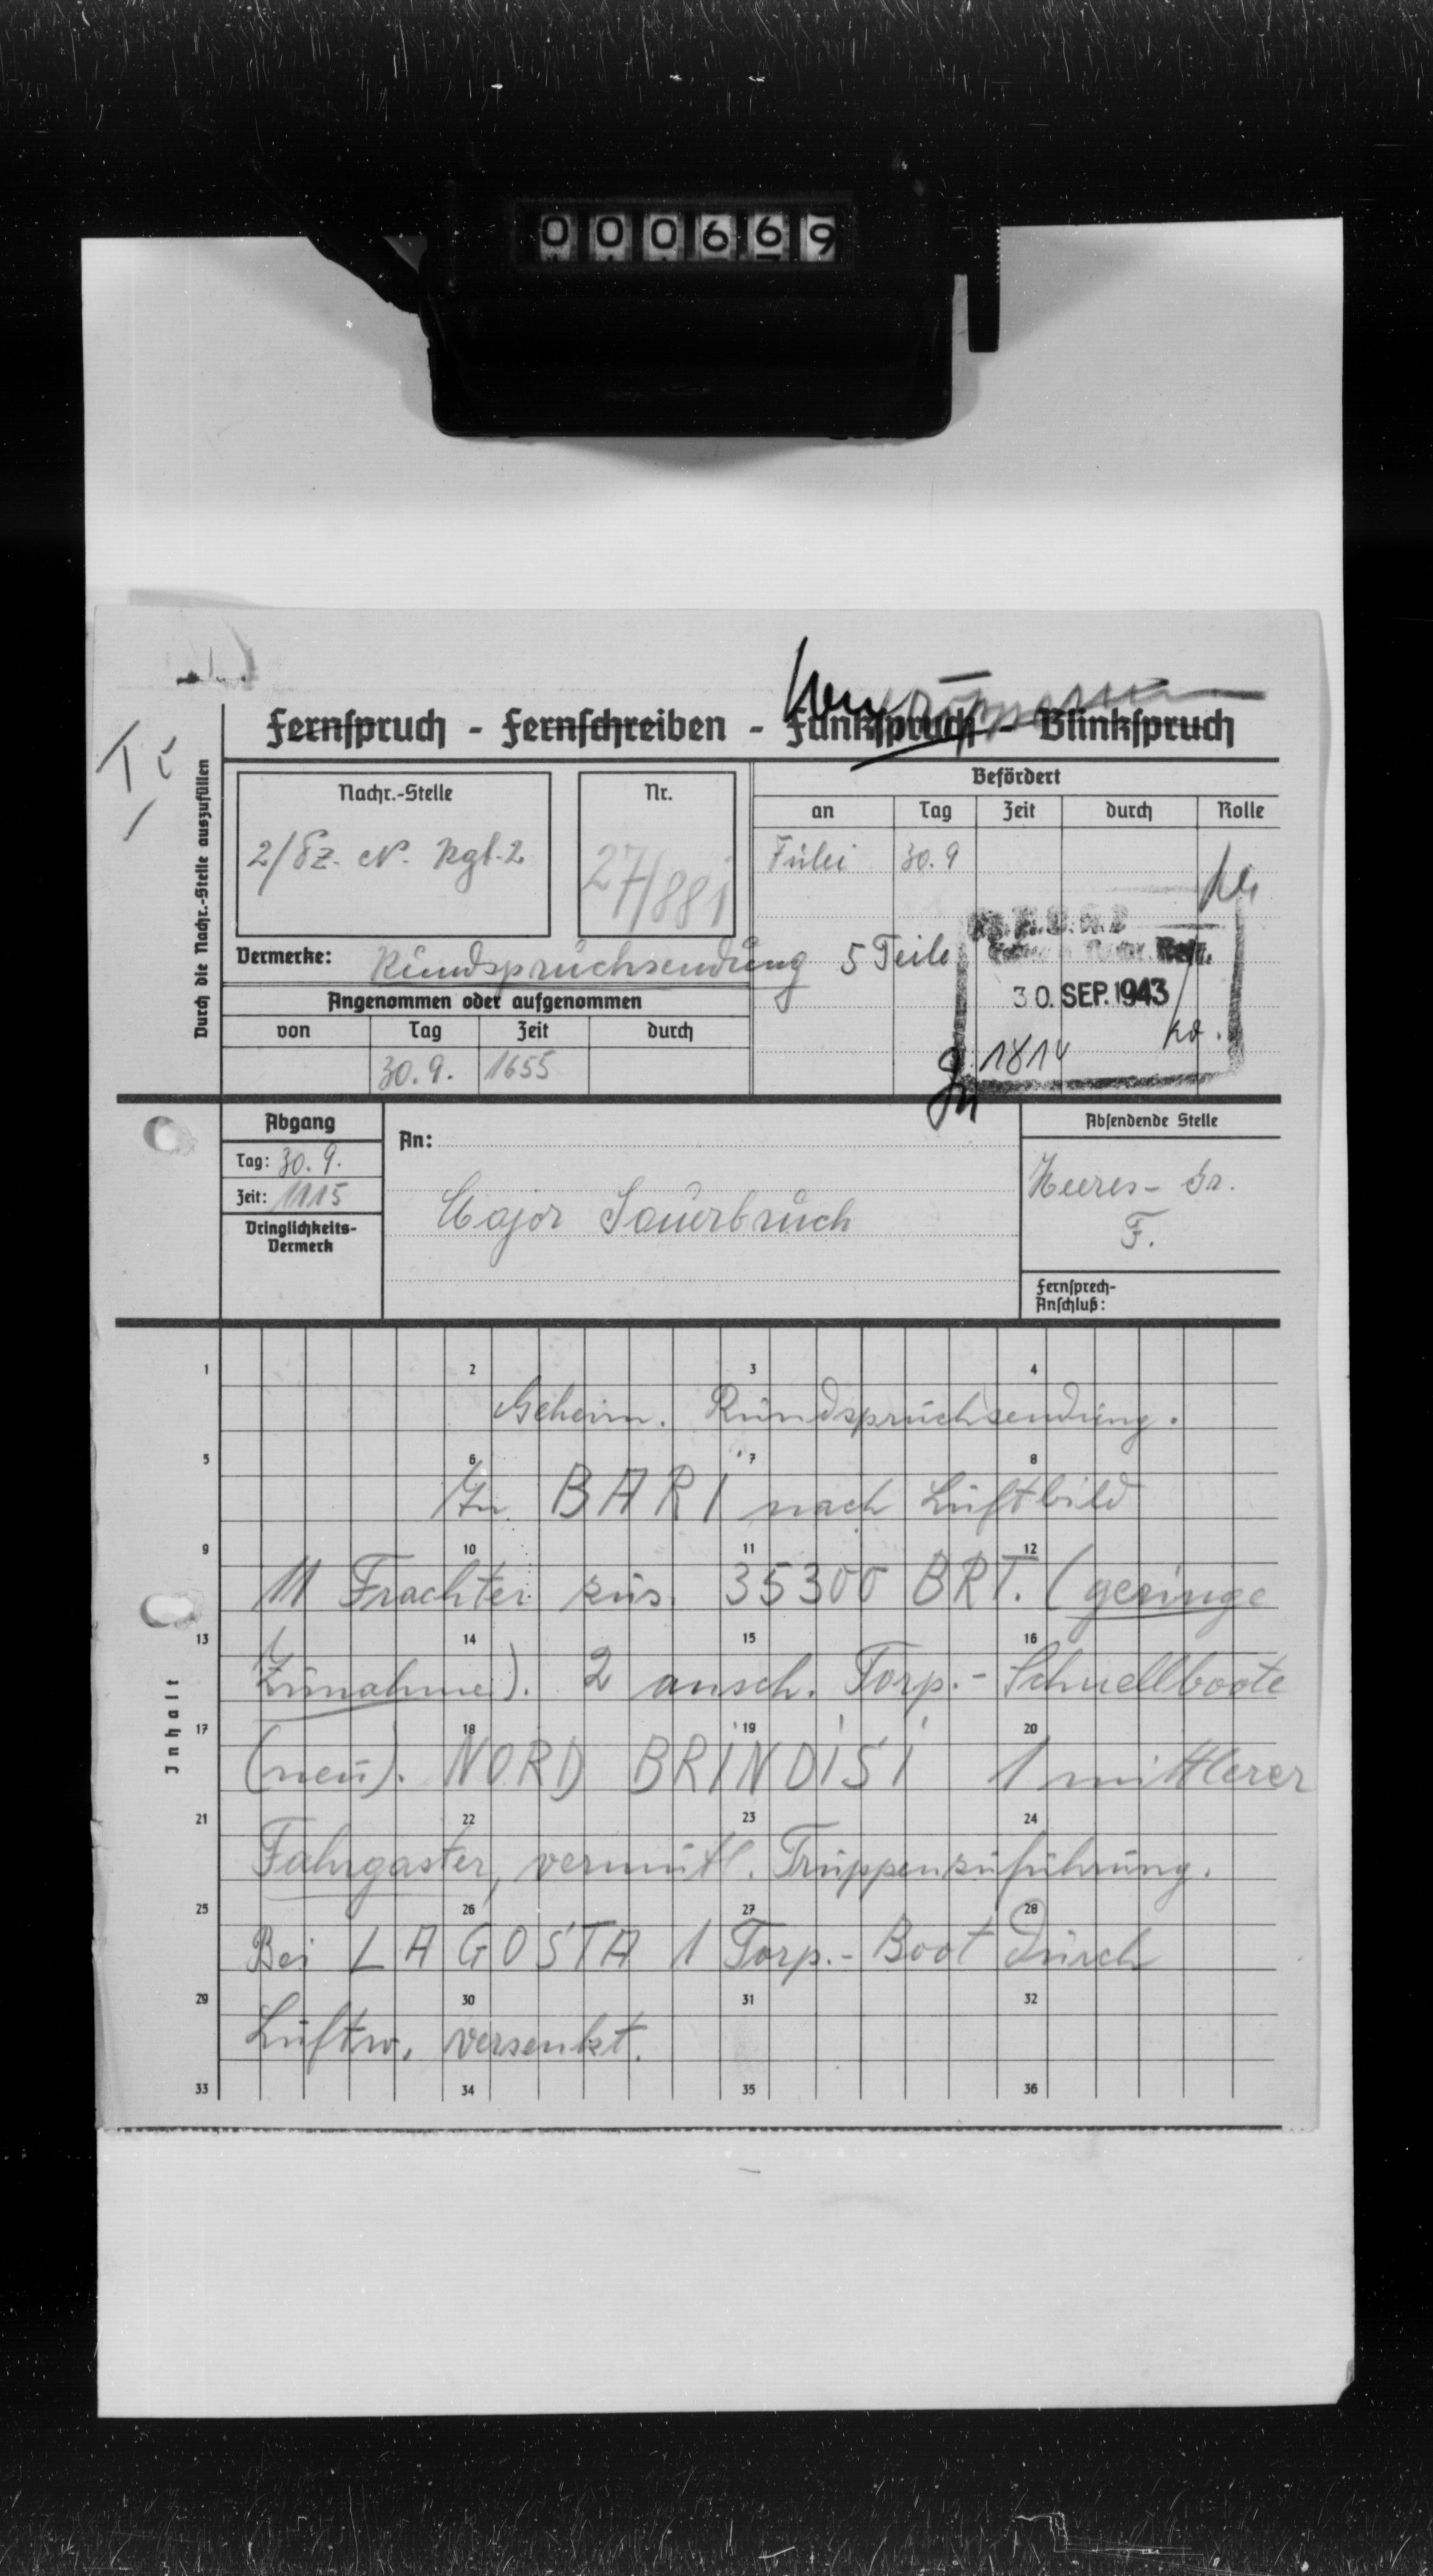 000669
Fernspruch - Fernschreiben - Funkspruch - Blinkspruch
Durch die Nachr.-Stelle auszufüllen
Nachr.-Stelle
2/Pz. N. Rgt. 2
Nr.
27/881
Befördert
an Tag Zeit durch Rolle
Fülei 30.9
Vermerke: Rundspruchsendung 5 Teile
30. SEP. 1943
1814
Angenommen oder aufgenommen
von Tag Zeit durch
30.9. 1655
Abgang
Tag: 30.9.
Zeit: 1115
Dringlichkeits-
Vermerk
An:
Major Sauerbruch
Absendende Stelle
Heeres-Gr.
F.
Fernsprech-
Anschluß:
Inhalt
1 2 3 4
Geheim. Rundspruchsendung.
5 6 7 8
In BARI nach Luftbild
9 10 11 12
11 Frachter zus. 35300 BRT. (geringe
13 14 15 16
Zunahme). 2 ansch. Torp.-Schnellboote
17 18 19 20
(neu). NORD BRINDISI 1 mittlerer
21 22 23 24
Fahrgaster, vermutl. Truppenzuführung.
25 26 27 28
Bei LAGOSTA 1 Torp.-Boot durch
29 30 31 32
Luftw. versenkt.
33 34 35 36